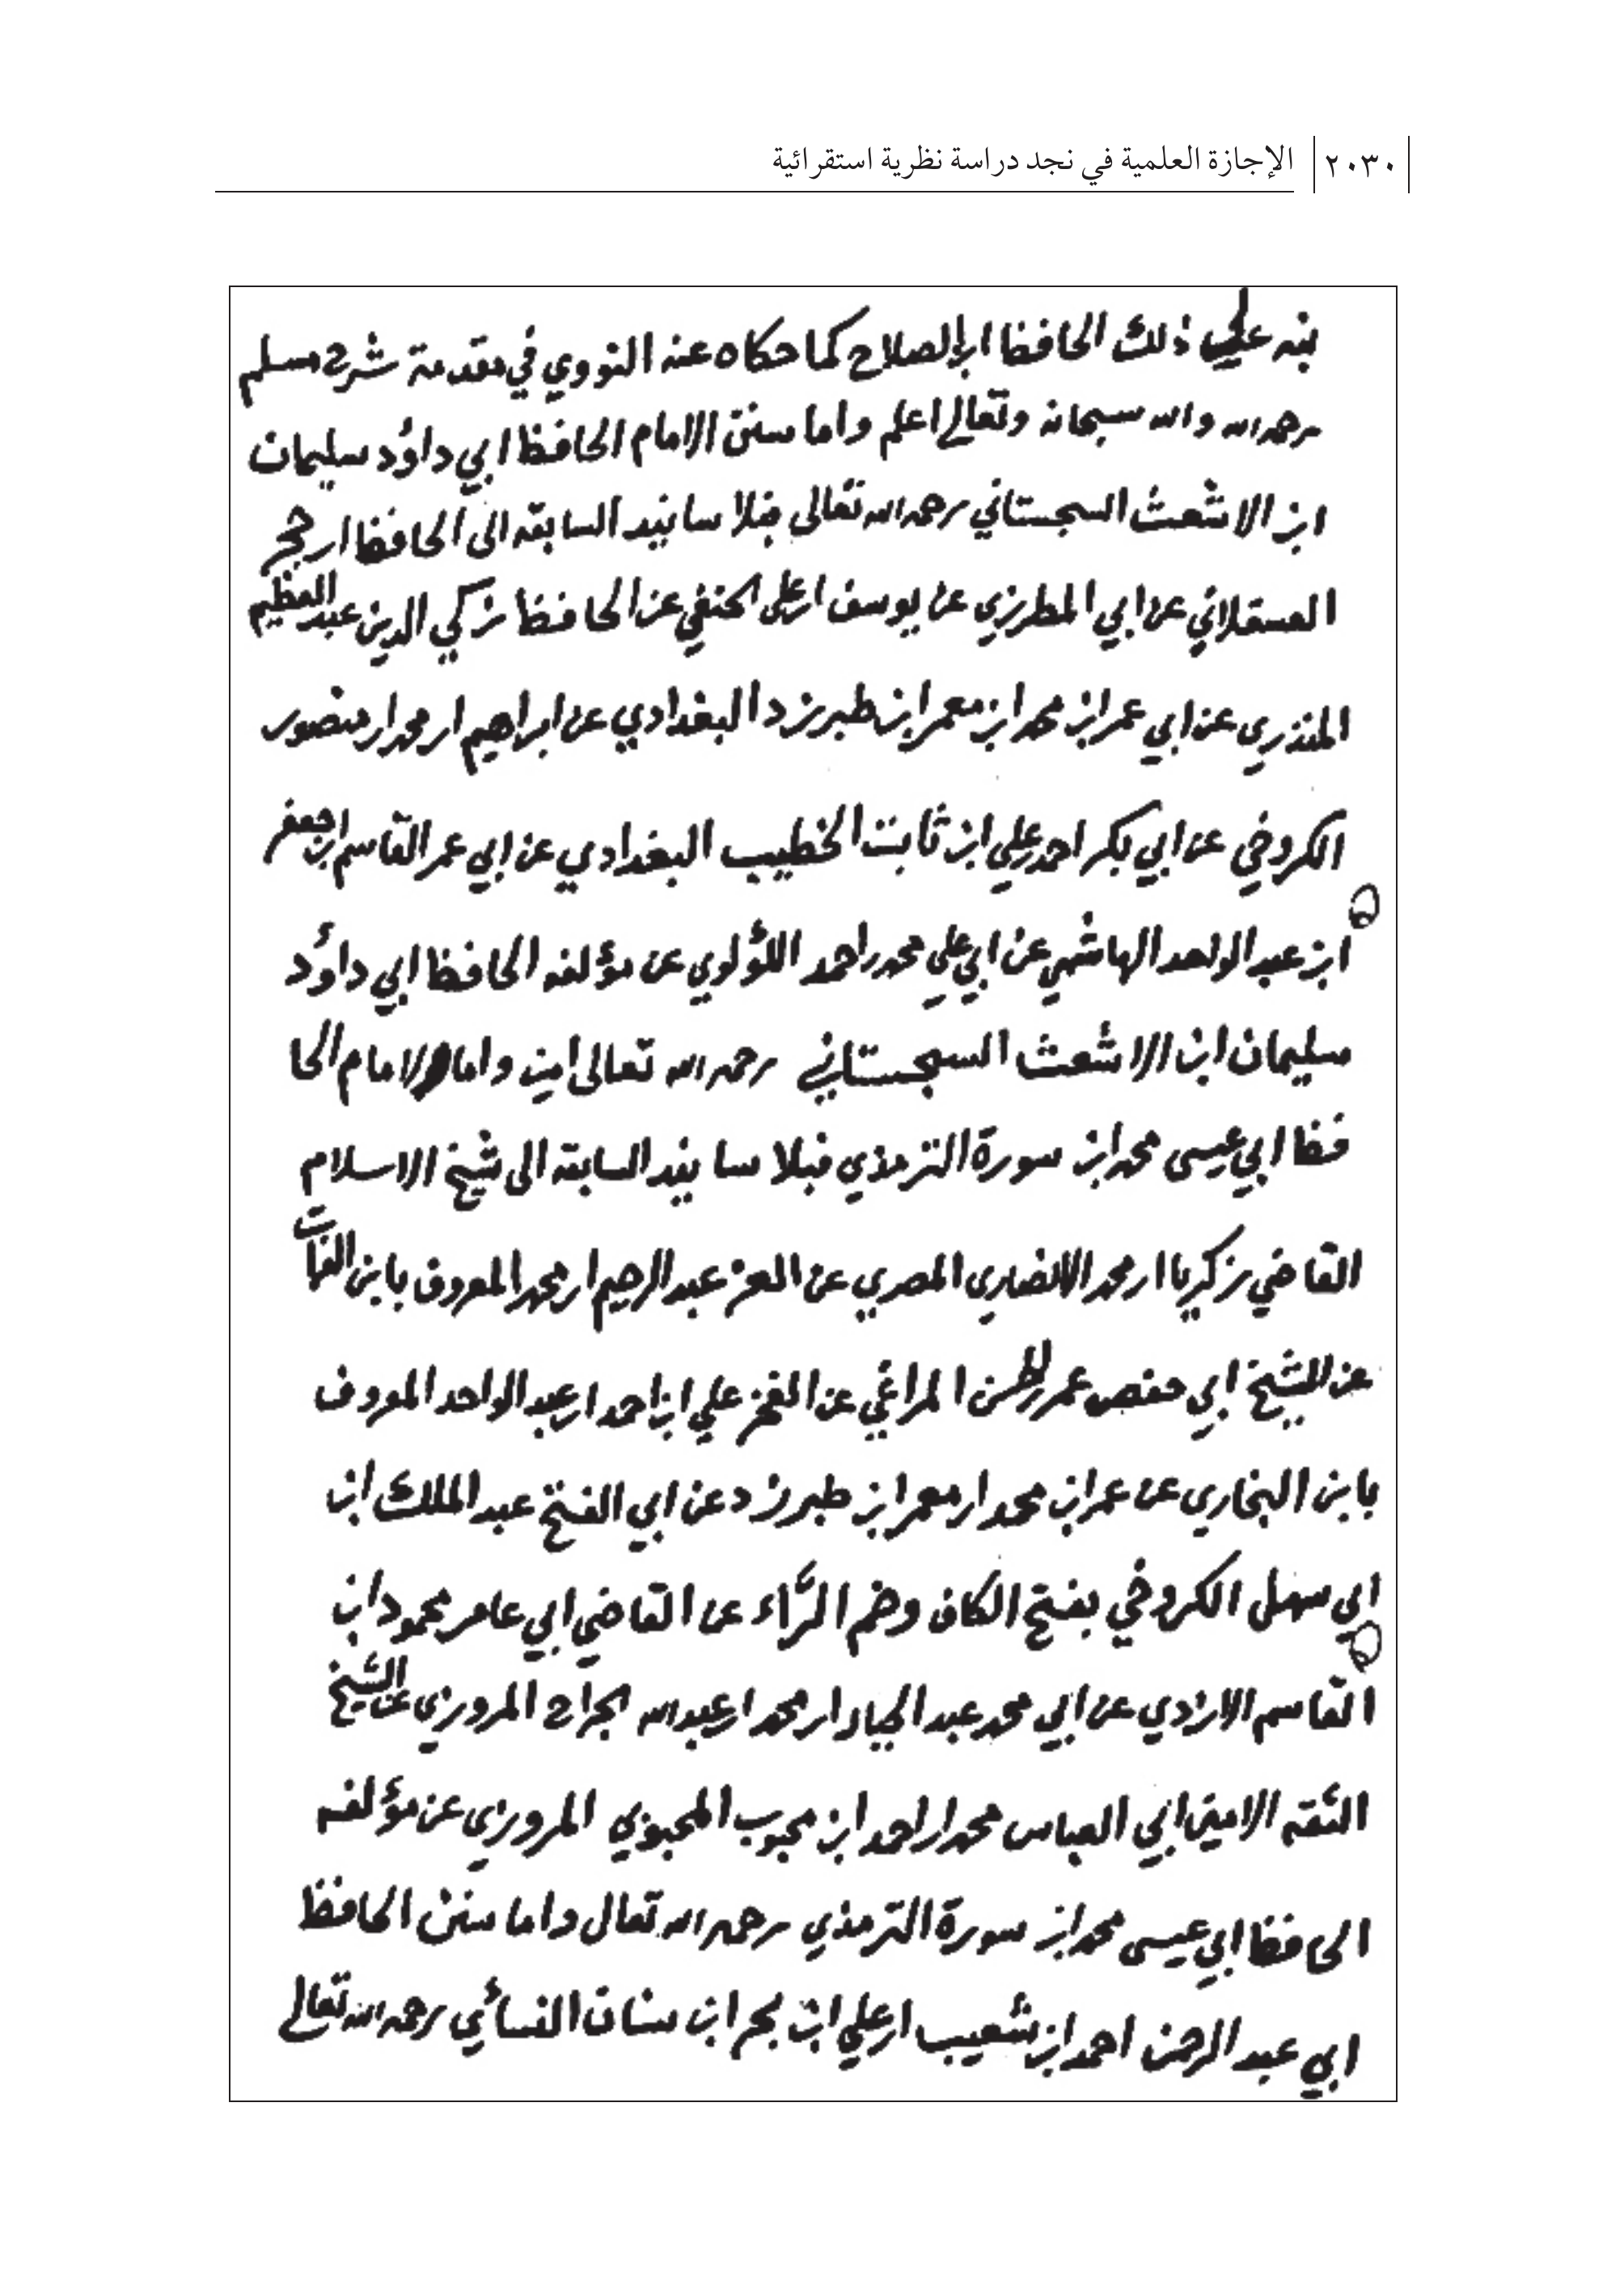 ٢٠٣٠ الإجازة العلمية في نجد دراسة نظرية استقرائية
نبه علي ذلك الحافظ ابن الصلاح كما حكاه عنه النووي في مقدمة شرح مسلم
رحمه الله والله سبحانه وتعالى اعلم واما سنن الامام الحافظ ابي داؤد سليمان
ابن الاشعث السجستاني رحمه الله تعالى فبالاسانيد السابقة الى الحافظ ابن حجر
العسقلاني عن ابي المطرزي عن يوسف ابن علي الحنفي عن الحافظ زكي الدين عبد العظيم
المنذري عن ابي عمر ابن محمد ابن معمر ابن طبرزد البغدادي عن ابراهيم ابن محمد ابن منصور
الكروخي عن ابي بكر احمد بن علي ابن ثابت الخطيب البغدادي عن ابي عمر القاسم بن جعفر
ابن عبد الواحد الهاشمي عن ابي علي محمد بن احمد اللؤلوي عن مؤلفه الحافظ ابي داؤد
سليمان ابن الاشعث السجستاني رحمه الله تعالى امين واما الامام الحا
فظ ابي عيسى محمد ابن سورة الترمذي فبالاسانيد السابقة الى شيخ الاسلام
القاضي زكريا ابن محمد الانصاري المصري عن العز عبد الرحيم ابن محمد المعروف بابن الفرات
عن الشيخ ابي حفص عمر بن الحسن المراغي عن الفخر علي ابن احمد ابن عبد الواحد المعروف
بابن البخاري عن عمر ابن محمد ابن معمر ابن طبرزد عن ابي الفتح عبد الملك ابن
ابي سهل الكروخي بفتح الكاف وضم الراء عن القاضي ابي عامر محمود ابن
القاسم الازدي عن ابي محمد عبد الجبار ابن محمد ابن عبد الله الجراح المروزي عن الشيخ
الثقه الامين ابي العباس محمد ابن احمد ابن محبوب المحبوبي المروزي عن مؤلفه
الحافظ ابي عيسى محمد ابن سورة الترمذي رحمه الله تعالى واما سنن الحافظ
ابي عبد الرحمن احمد ابن شعيب ابن علي ابن بحر ابن سنان النسائي رحمه الله تعالى